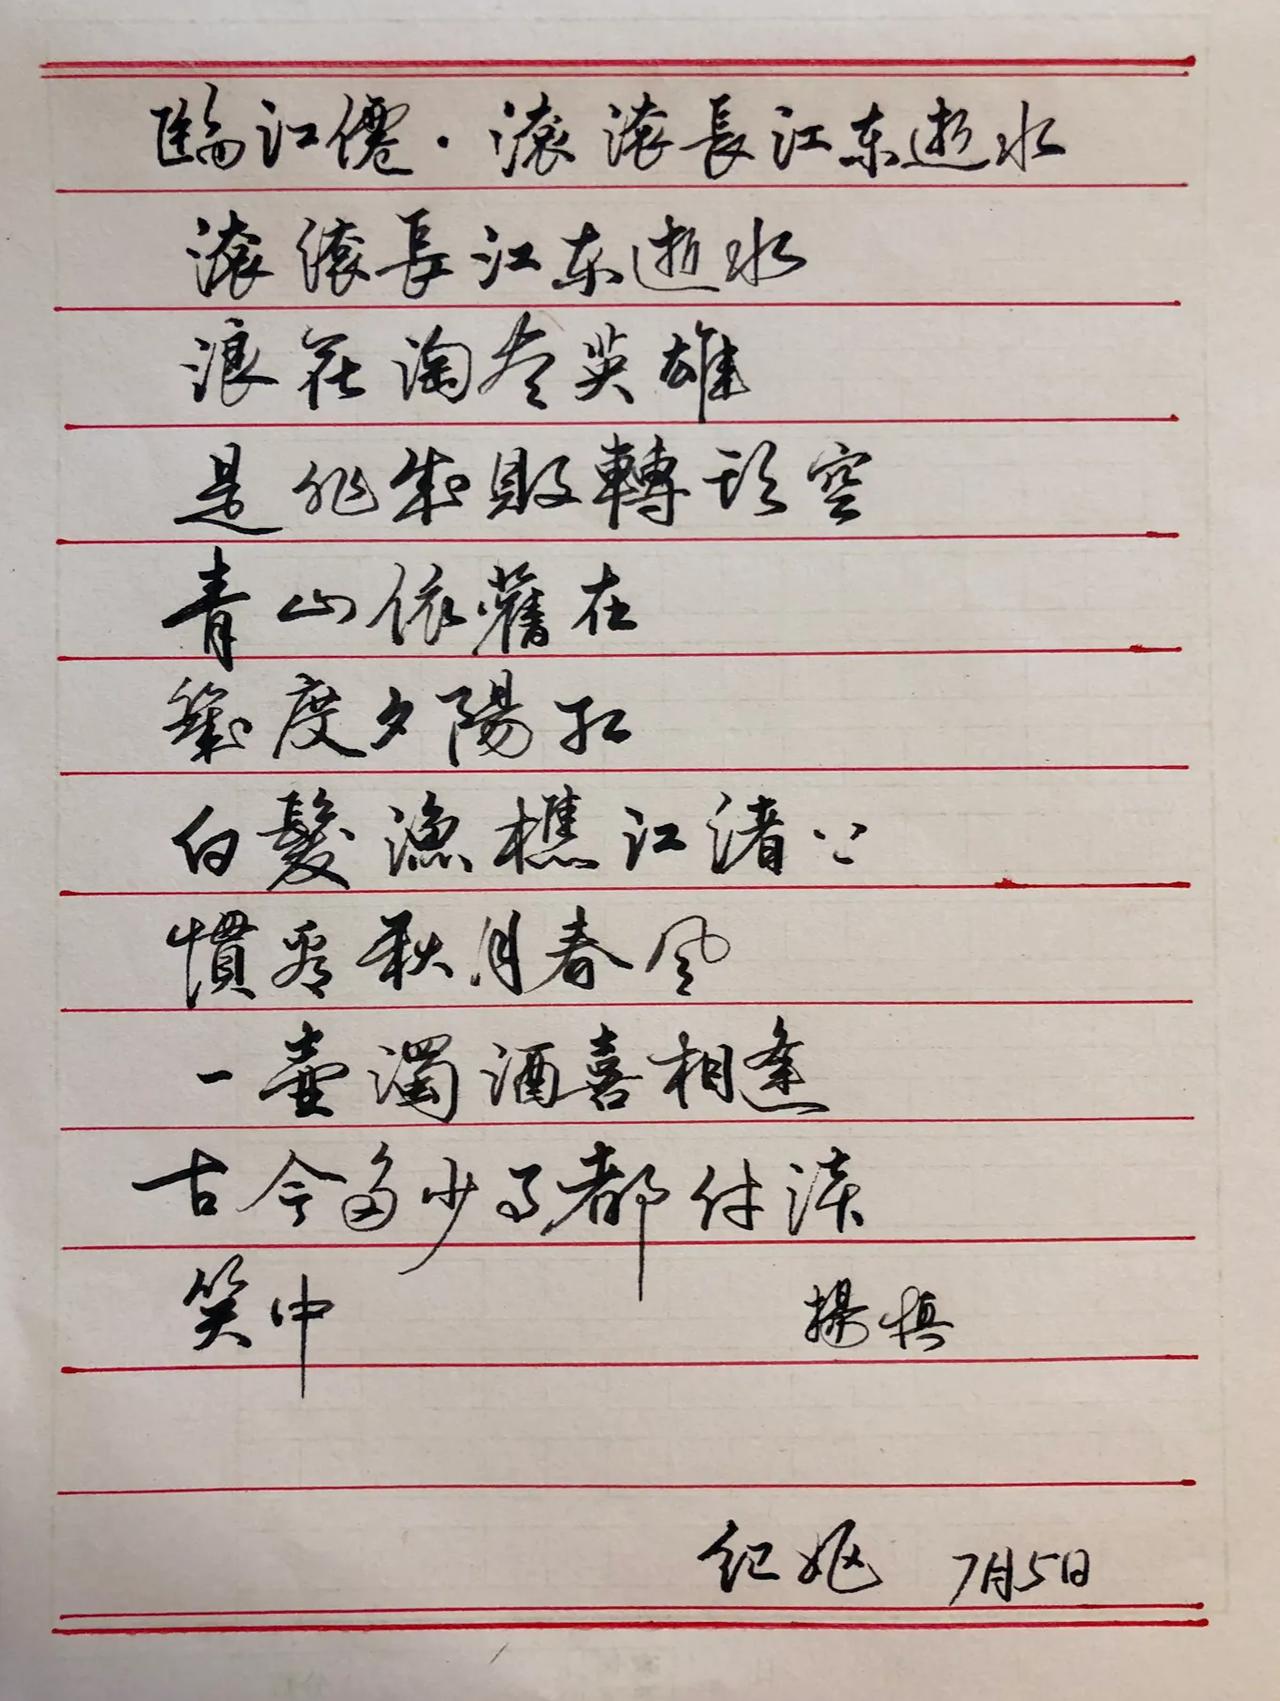 臨江僊·滚滚長江东逝水
滚滚長江东逝水
浪花淘尽英雄
是非成敗轉头空
青山依舊在
幾度夕陽红
白髮漁樵江渚上
慣看秋月春风
一壷濁酒喜相逢
古今多少事都付淡
笑中 楊慎
7月5日